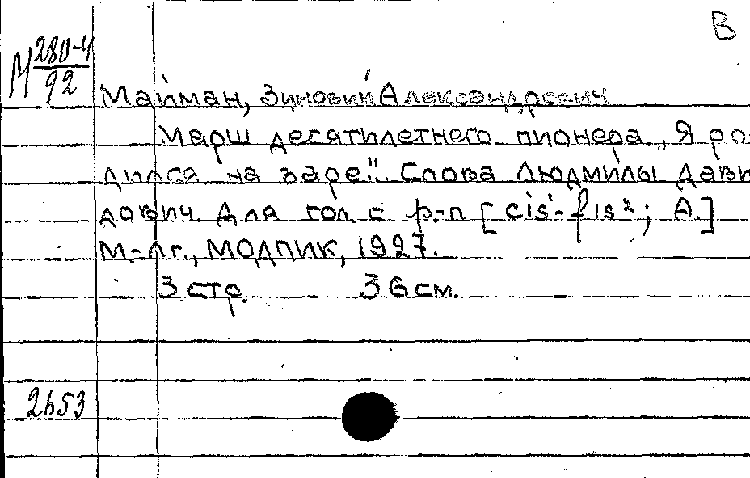 В
М 280-4
92
Майман, Зиновий Александрович
Марш десятилетнего пионера „Я ро-
дился на заре". Слова Людмилы Дави
дович. Для гол. с ф-п [cis¹-fis²; A.]
М-Лг., МОДПИК, 1927.
3 стр. 36 см.
2653